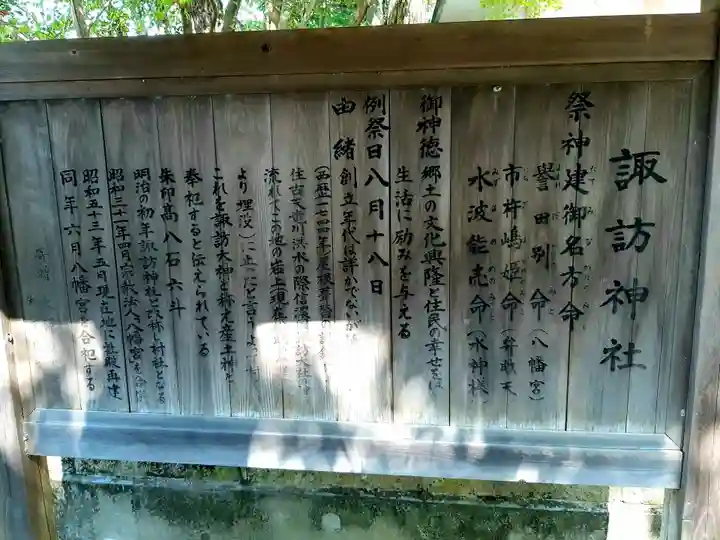 諏訪神社
祭神 建御名方命
たてみなかたのみこと
誉田別命(八幡宮)
市杵嶋姫命(弁戝天
水波能売命(水神様)
御神徳 郷土の文化興隆と住民の幸せをは
生活に励みを与える
例祭日 八月十八日
由緒 創立年代は詳かでないが
(西暦一七四四年)屋根葺替の
住古天竜川洪水の際信濃の
流れてこの地の岩上現在
より埋没)に止
これを諏訪大神と称え産土神と
奉祀すると伝えられている
朱印高八石六斗
明治の初年諏訪神社と改称し村社となる
昭和三十一年四月宗教法人八幡宮を合併
昭和五十三年五月現在地に社殿再建
同年六月八幡宮を合祀する